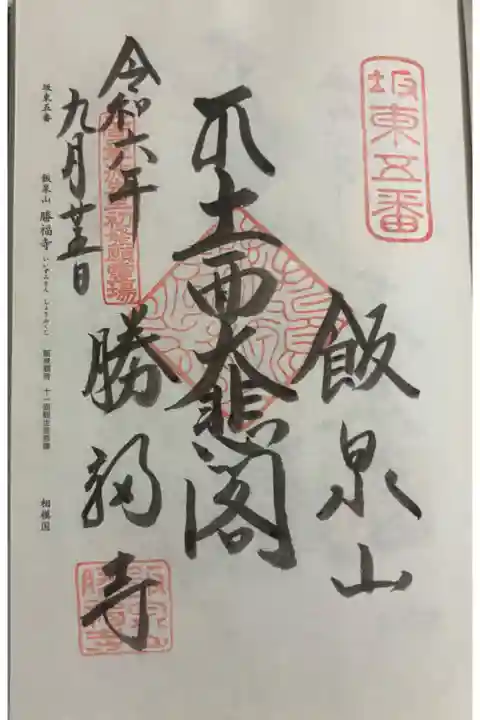 坂東五番
飯泉山
大悲閣
勝福寺
令和六年
九月廿五日
初発願霊場
飯泉山
勝福寺
坂東五番 飯泉山 勝福寺 いいずみさん しょうふくじ 飯泉観音 十一面観世音菩薩 相模国